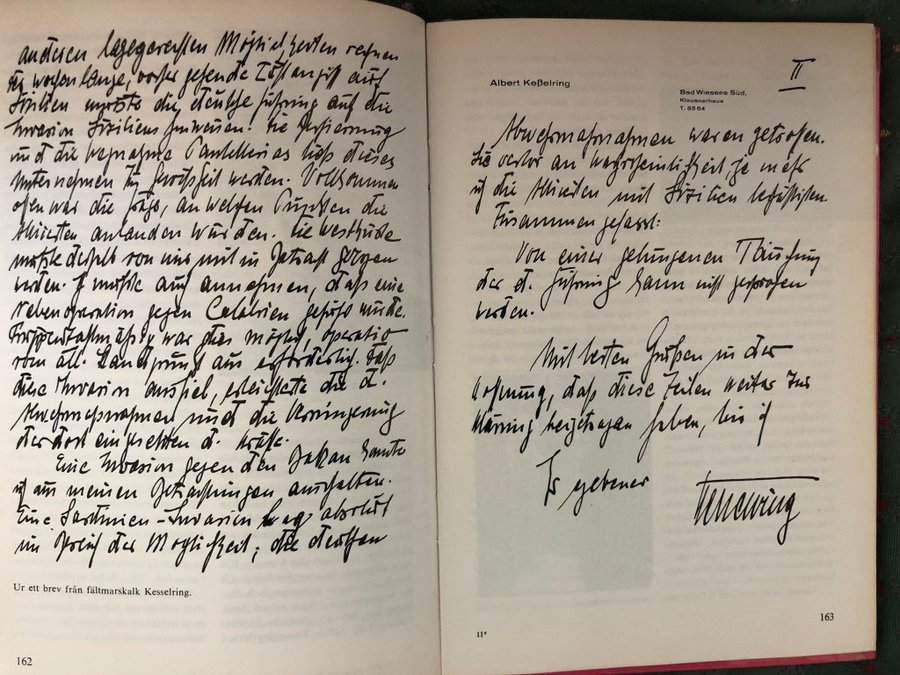 anderen lagegerechten Möglichkeiten
wochenlange, vorher gehende Luftangriff auf
Sizilien mußte die deutsche Führung auf die
Invasion Siziliens hinweisen. Die
und die Wegnahme Pantellerias ließ dieses
Unternehmen zur werden. Vollkommen
offen war die Frage, an welchen Punkten die
Alliierten anlanden würden. Die Westküste
mußte deshalb von uns mit in Betracht gezogen
werden. Ich mußte auch annehmen, daß eine
Nebenoperation gegen Calabrien geführt würde.
war dies möglich, operativ
vom all. Standpunkt aus erforderlich. Daß
diese Invasion ausfiel, erleichterte die d.
Abwehrmaßnahmen und die Verringerung
der dort eingesetzten d. Kräfte.
Eine Invasion gegen den Balkan konnte
ich aus meinen Betrachtungen ausschalten.
Eine Sardinien-Invasion lag absolut
im Bereich der Möglichkeit; die deutschen
Ur ett brev från fältmarskalk Kesselring.
162
Albert Keßelring
II
Bad Wiessee Süd,
Klausnerhaus
T. 8564
Abwehrmaßnahmen waren getroffen.
Sie verlor an Wahrscheinlichkeit, je mehr
sich die Alliierten mit Sizilien beschäftigten.
Zusammengefaßt:
Von einer gelungenen Täuschung
der d. Führung kann nicht gesprochen
werden.
Mit besten Grüßen in der
Hoffnung, daß diese Zeilen weiter zur
Klärung beigetragen haben, bin ich
Ihr ergebener
Kesselring
11*
163